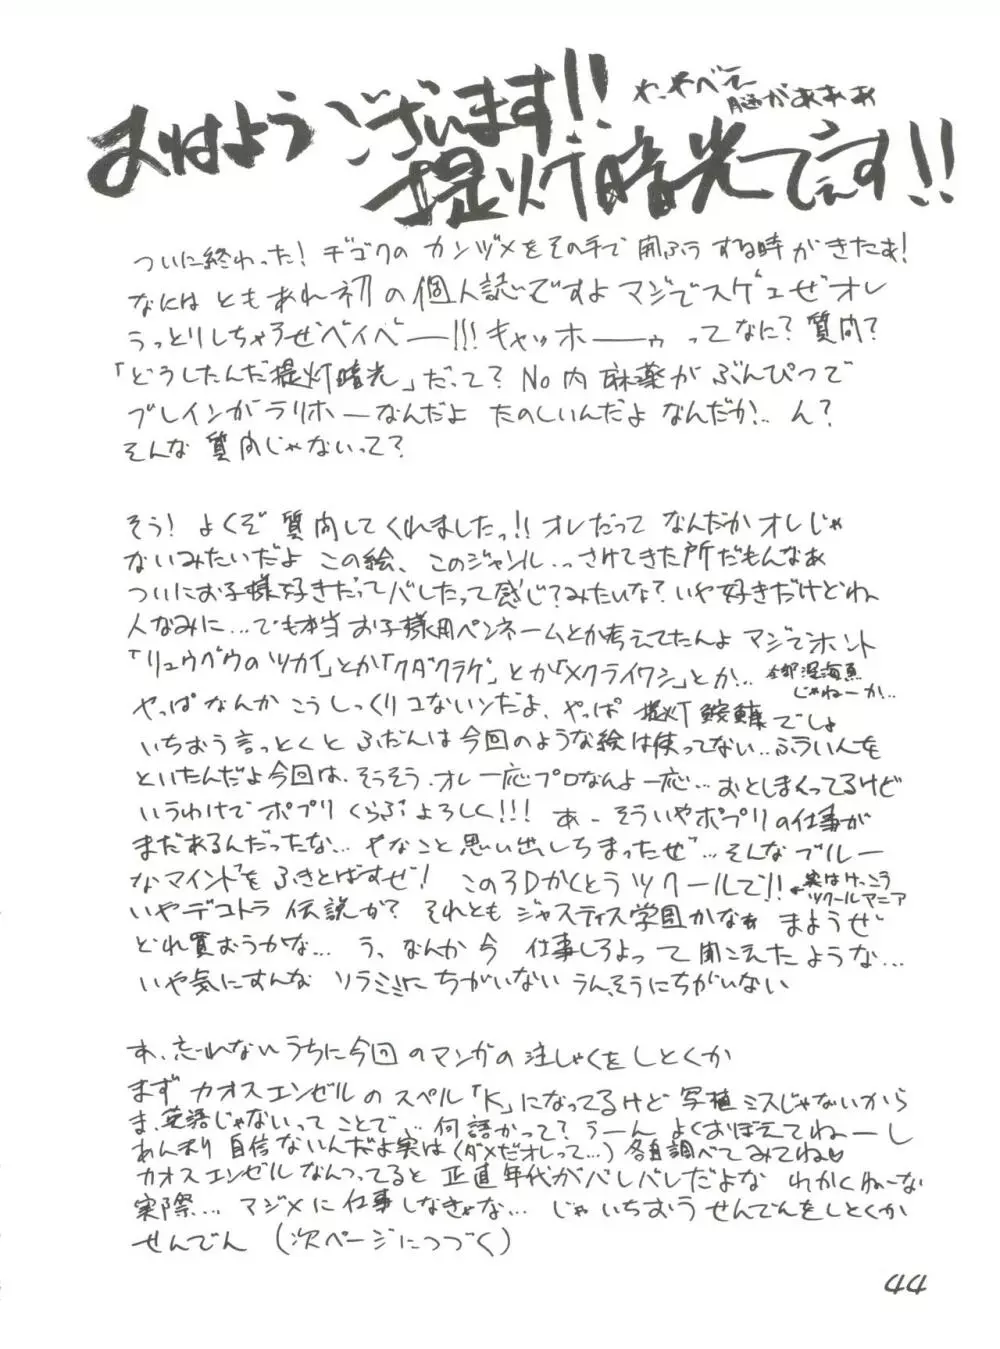 おはようございます!!
わ、やべえ
脳があああ
提灯暗光でぇす!!
ついに終わった! ヂゴクのカンヅメをその手で開ふうする時がきたぁ!
なにはともあれ初の個人誌ですよ マジでスゲェぜオレ
うっとりしちゃうぜベイベーー!!! キャッホーーゥ ってなに? 質問?
「どうしたんだ提灯暗光」だって? No内麻薬がぶんぴつで
ブレインがラリホーなんだよ たのしいんだよ なんだか!.. ん?
そんな質問じゃないって?
そう! よくぞ質問してくれましたっ!! オレだって なんだかオレじゃ
ないみたいだよ この絵、このジャンル..っさけてきた所だもんなぁ
ついにお子様好きだってバレたって感じ?みたいな? いや好きだけどね
人なみに... でも本当お子様用ペンネームとか考えてたんよ マジでホント
「リュウグウのツカイ」とか「クダクラゲ」とか「メクライワシ」とか...
全部深海魚
じゃねーか...
やっぱなんかこうしっくりコないンだよ、やっぱ 提灯鮟鱇でしょ
いちおう言っとくと ふだんは今回のような絵は使ってない.. ふういんを
といたんだよ今回は、そうそう、オレ一応プロなんよ一応... おとしまくってるけど
いうわけでポプリくらぶよろしく!!! あ- そういやポプリの仕事が
まだあるんだったな... ヤなこと思い出しちまったぜ... そんなブルー
なマインドをふきとばすぜ! この3Dかくとうツクールで!!
←実はけっこう
ツクールマニア
いやデコトラ伝説か? それともジャスティス学園かなぁ まようぜ
どれ買おうかな... う、なんか今 仕事しろよって聞こえたような...
いや気にすんな ソラミミにちがいない うん、そうにちがいない
お、忘れないうちに今回のマンガの注しゃくをしとくか
まず カオスエンゼルのスペル「K」になってるけど写植ミスじゃないから
ま、英語じゃないってことで... 何語かって? うーん よくおぼえてねーし
あんまり自信ないんだよ実は(ダメだオレって...) 各自調べてみてね♡
カオスエンゼルなんつってると 正直年代がバレバレだよな わかくねーな
実際... マジメに仕事しなきゃな... じゃ いちおうせんでんをしとくか
せんでん (次ページにつづく)
44